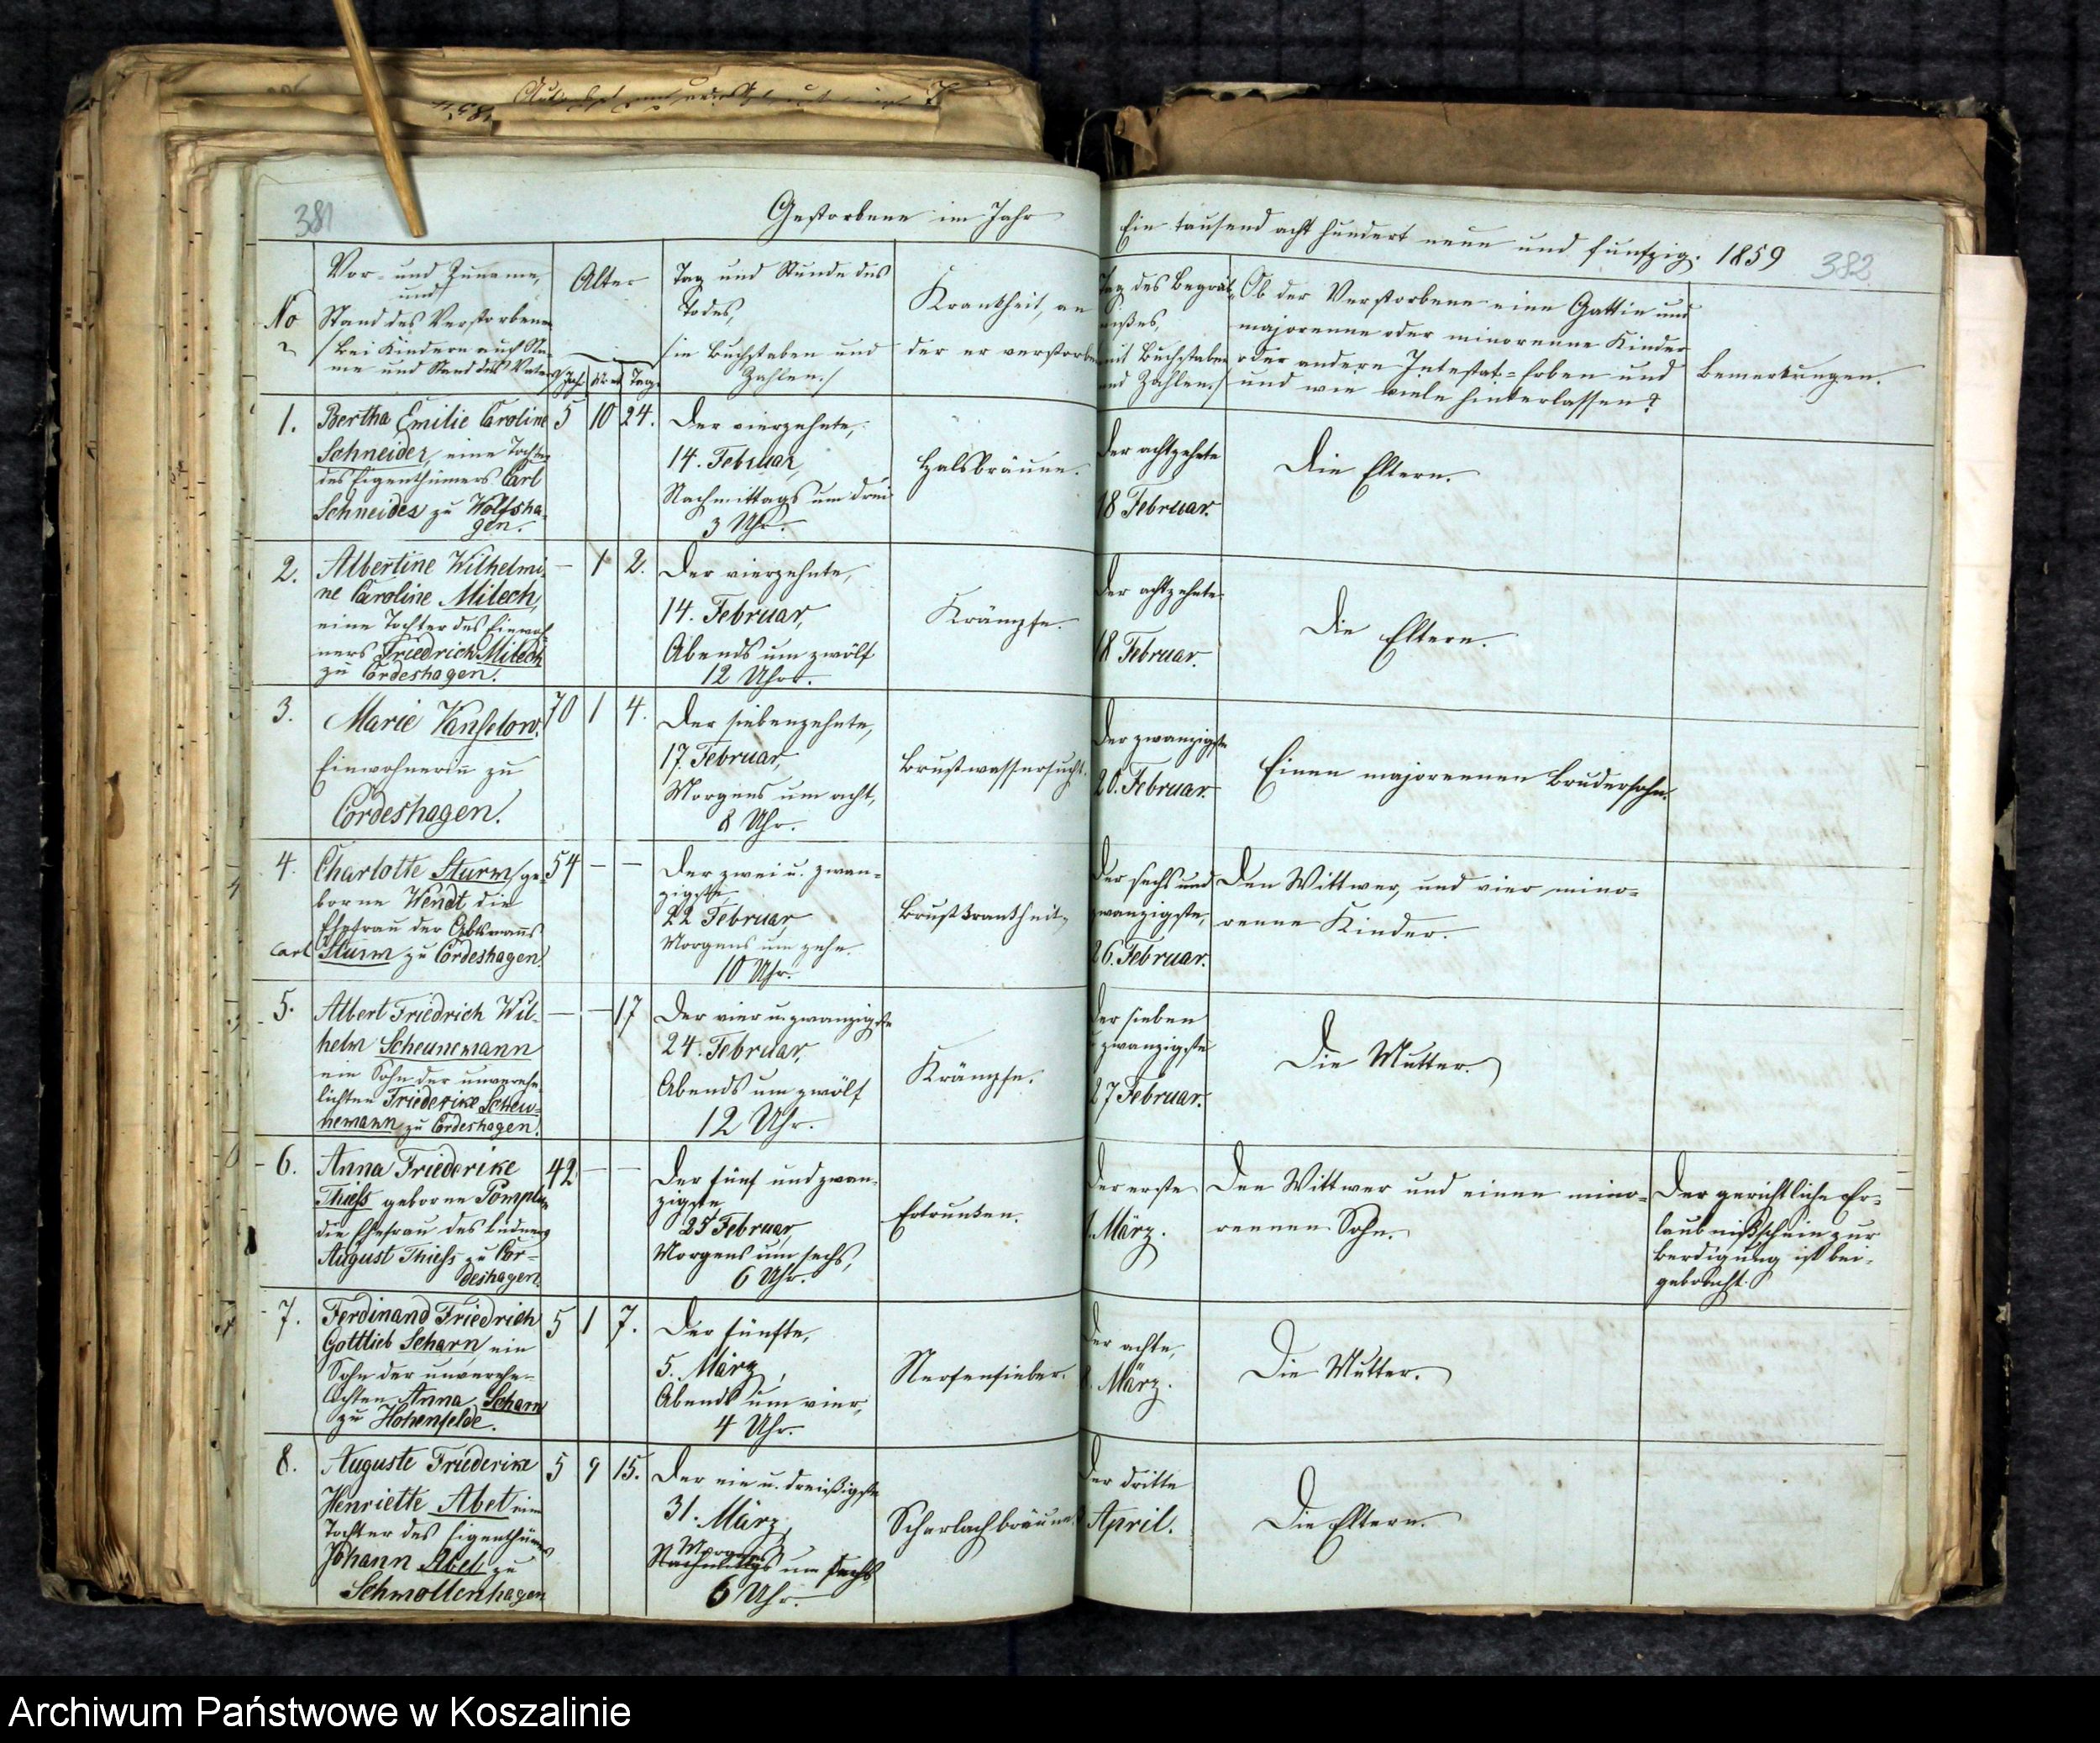 381
Gestorbene im Jahr
No
Vor- und Zuname,
und
Stand des Verstorbenen
/Bei Kindern auch Na-
me und Stand des Vaters/
Alter
Jahr Mont Tage
Tag und Stunde des
Todes,
/in Buchstaben und
Zahlen./
Krankheit, an
der er verstorben
1.
Bertha Emilie Caroline
Schneider, eine Tochter
des Eigenthümers Carl
Schneider zu Wolfsha-
gen.
5 10 24.
Der vierzehnte,
14. Februar,
Nachmittags um drei
3 Uhr.
Halsbräune.
2.
Albertine Wilhelmi-
ne Caroline Milech,
eine Tochter des Einwoh-
ners Friedrich Milech
zu Cordeshagen.
– 1 2.
Der vierzehnte,
14. Februar,
Abends um zwölf
12 Uhr.
Krämpfe.
3.
Marie Vanselow.
Einwohnerin zu
Cordeshagen.
70 1 4.
Der siebenzehnte,
17. Februar,
Morgens um acht,
8 Uhr.
Brustwassersucht.
4.
Charlotte Sturm, ge-
borne Wendt die
Ehefrau des
Carl Sturm zu Cordeshagen.
54 – –
Der zwei u. zwan-
zigste,
22 Februar,
Morgens um zehn.
10 Uhr.
Brustkrankheit.
5.
Albert Friedrich Wil-
helm Scheunemann
ein Sohn der unverehe-
lichten Friederike Scheu-
nemann zu Cordeshagen.
– – 17
Der vier u. zwanzigste
24. Februar,
Abends um zwölf
12 Uhr.
Krämpfe.
6.
Anna Friederike
Thiess geborne Pomplun
die Ehefrau des Büdners
August Thiess zu Cor-
deshagen.
42 – –
Der fünf und zwan-
zigste
25 Februar,
Morgens um sechs,
6 Uhr.
Ertrunken.
7.
Ferdinand Friedrich
Gottlieb Scharn, ein
Sohn der unverehe-
lichten Anna Scharn
zu Hohenfelde.
5 1 7.
Der fünfte,
5. März,
Abends um vier,
4 Uhr.
Nervenfieber.
8.
Auguste Friederike
Henriette Abel eine
Tochter des Eigenthümers
Johann Abel zu
Schmollenhagen
5 9 15.
Der ein u. dreißigste
31. März,
Morgens
Nachmittags um sechs
6 Uhr.
Scharlachbräune.
Ein tausend acht hundert neun und funfzig. 1859
382
Tag des Begräb-
nißes,
mit Buchstaben
und Zahlen./
Ob der Verstorbene eine Gattin und
majorenne oder minorenne Kinder
oder andere Intestat-Erben und
und wie viele hinterlassen?
Bemerkungen.
Der achtzehnte
18 Februar.
Die Eltern.
Der achtzehnte
18 Februar.
Die Eltern.
Der zwanzigste
20. Februar.
Einen majorennen Brudersohn.
Der sechs und
zwanzigste,
26. Februar.
Den Wittwer, und vier mino-
renne Kinder.
Der sieben
zwanzigste
27 Februar.
Die Mutter.
Der erste
1. März.
Den Wittwer und einen mino-
rennen Sohn.
Der gerichtliche Er-
laubnißschein zur
Berdigung ist bei-
gebracht.
Der achte,
8. März.
Die Mutter.
Der dritte
3 April.
Die Eltern.
Archiwum Państwowe w Koszalinie